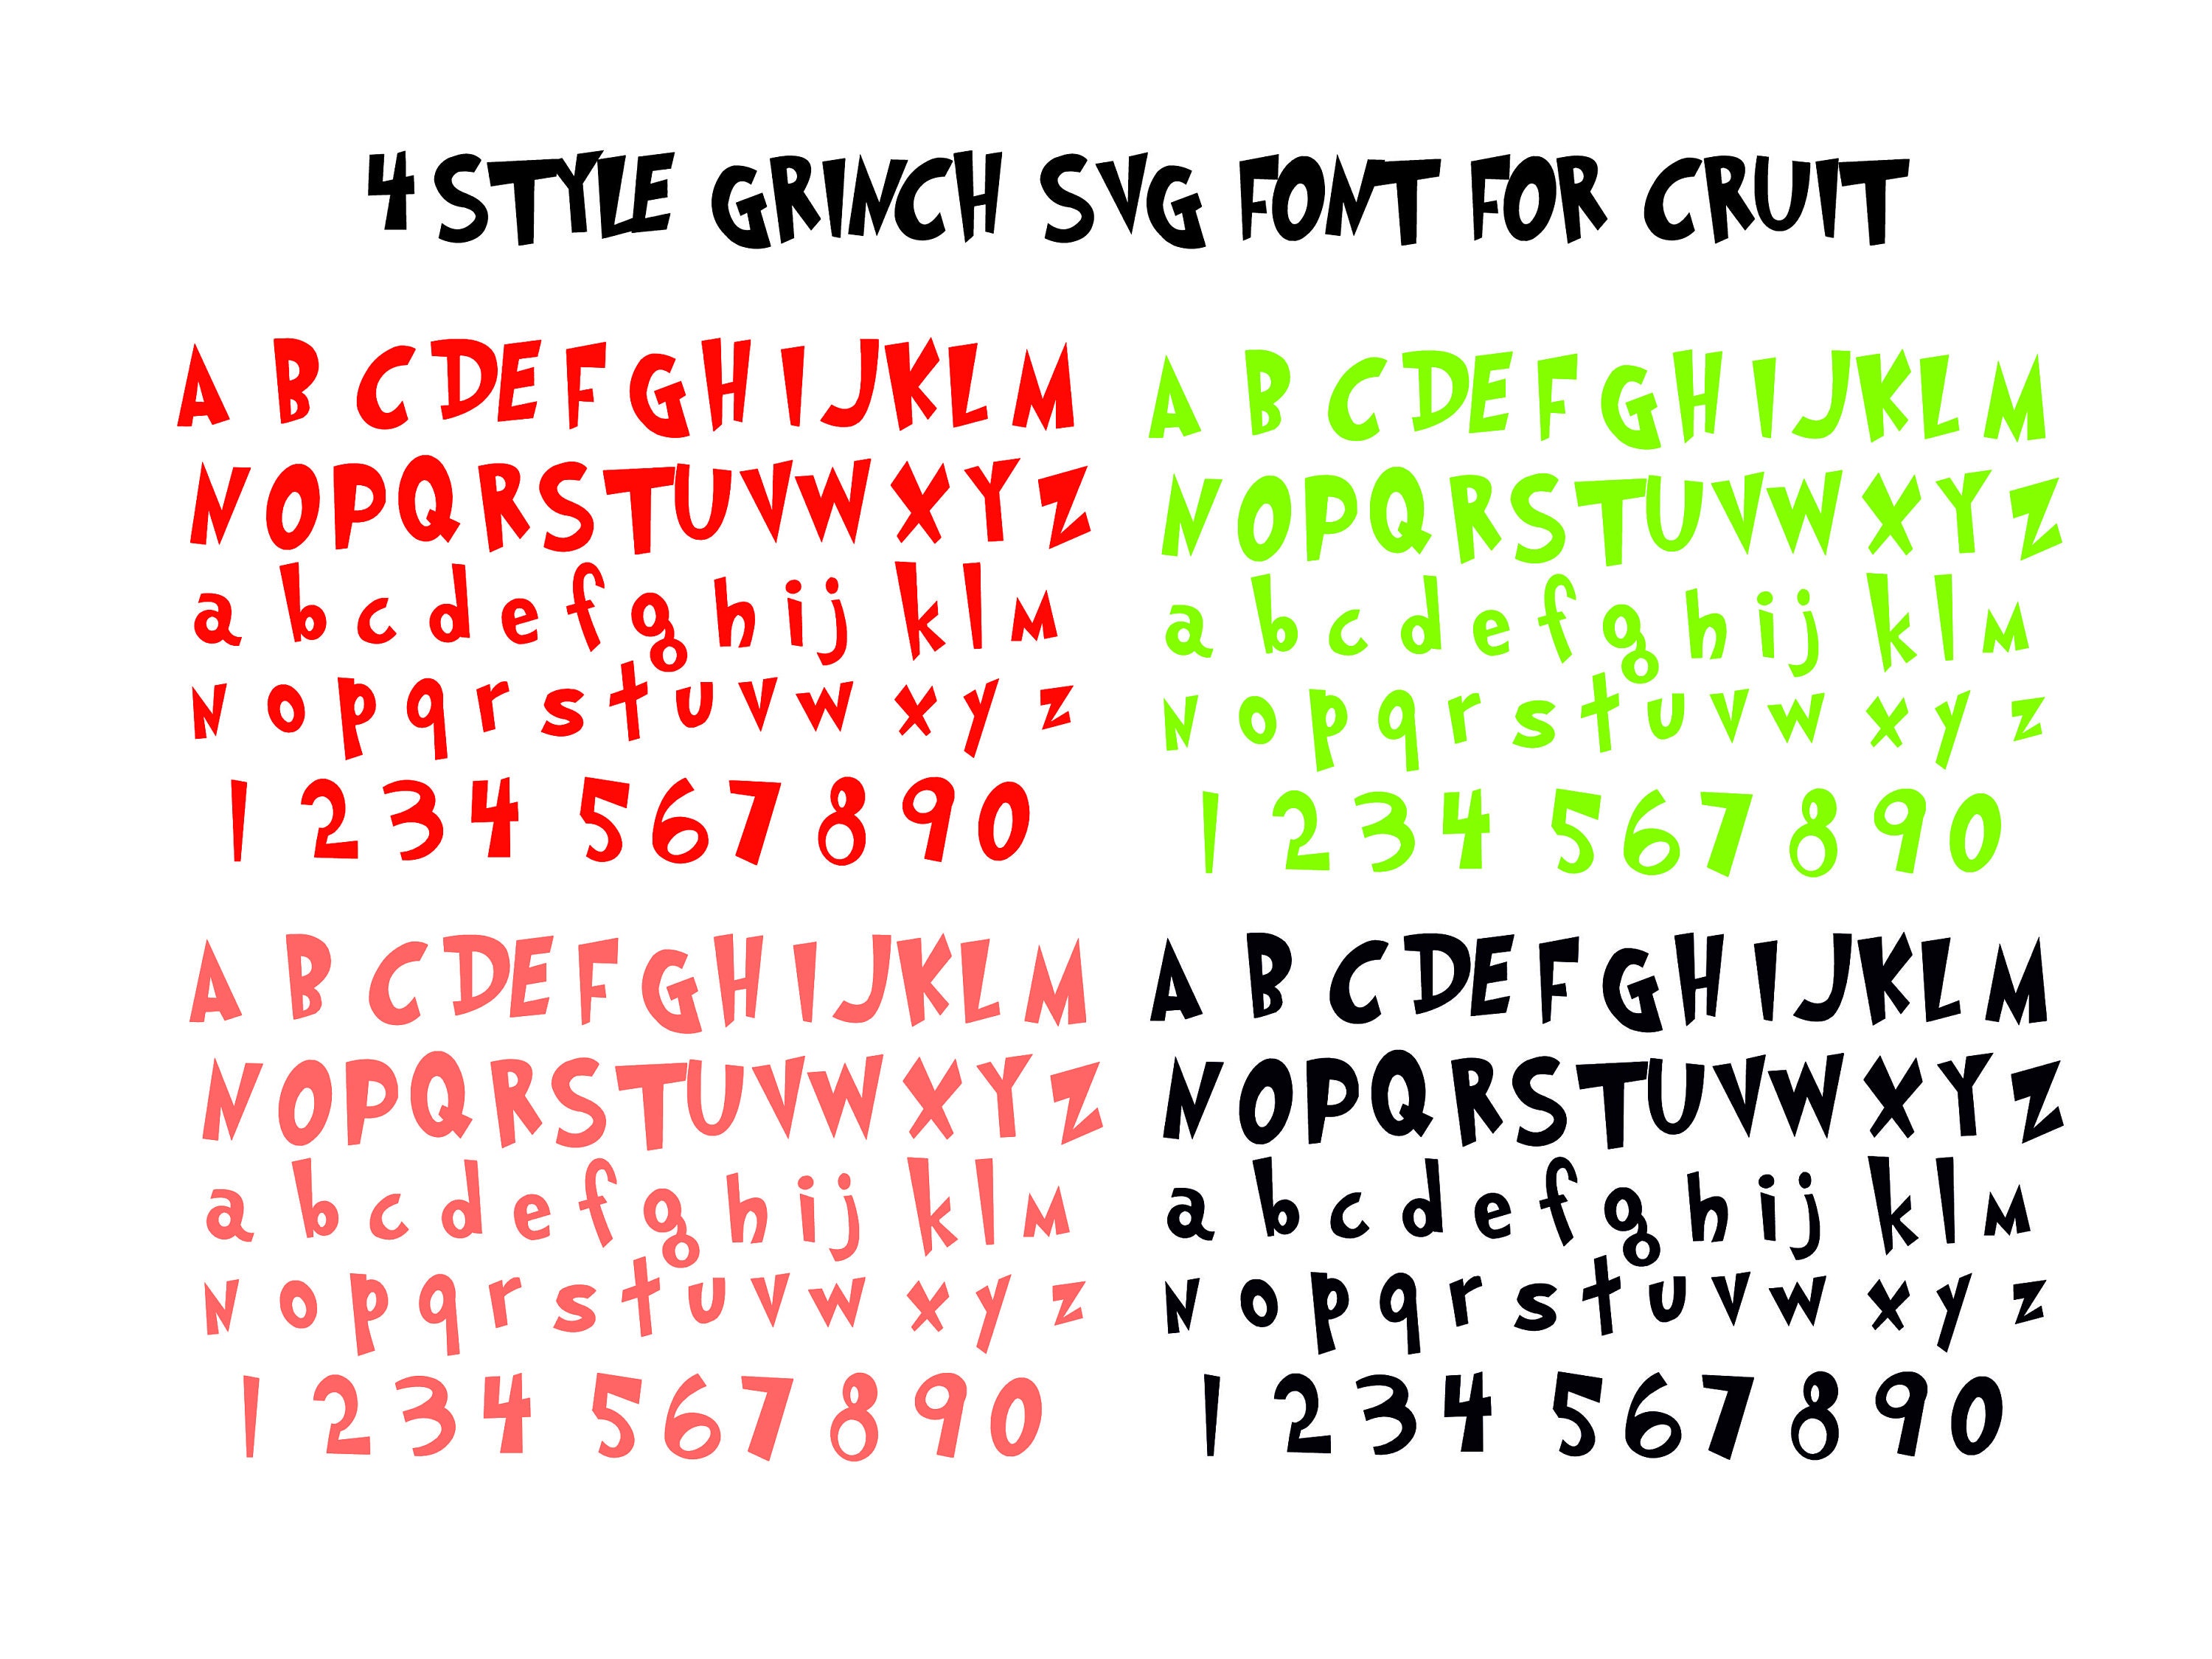 4 STYLE GRINCH SVG FONT FOR CRUIT
A B C D E F G H I J K L M
N O P Q R S T U V W X Y Z
a b c d e f g h i j k l m
n o p q r s t u v w x y z
1 2 3 4 5 6 7 8 9 0
A B C D E F G H I J K L M
N O P Q R S T U V W X Y Z
a b c d e f g h i j k l m
n o p q r s t u v w x y z
1 2 3 4 5 6 7 8 9 0
A B C D E F G H I J K L M
N O P Q R S T U V W X Y Z
a b c d e f g h i j k l m
n o p q r s t u v w x y z
1 2 3 4 5 6 7 8 9 0
A B C D E F G H I J K L M
N O P Q R S T U V W X Y Z
a b c d e f g h i j k l m
n o p q r s t u v w x y z
1 2 3 4 5 6 7 8 9 0